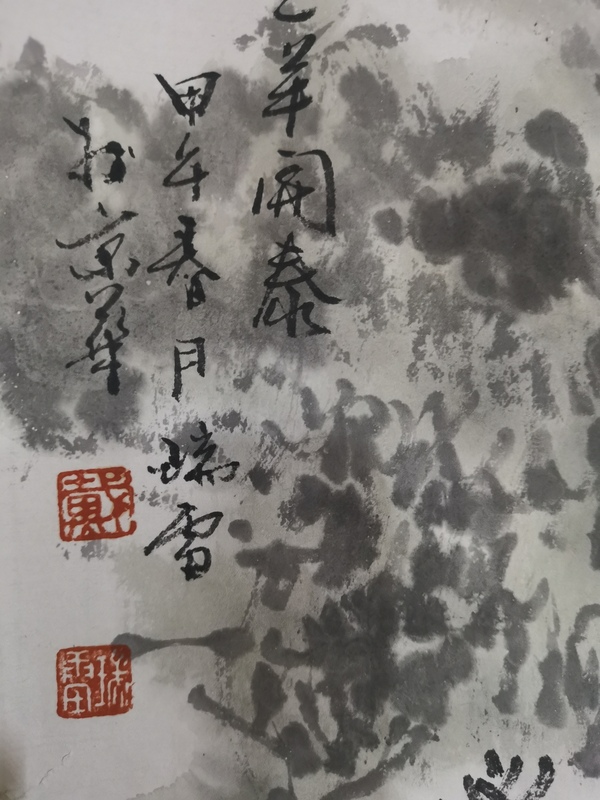 羊開泰
甲午春月瑞雷
於京華
戴